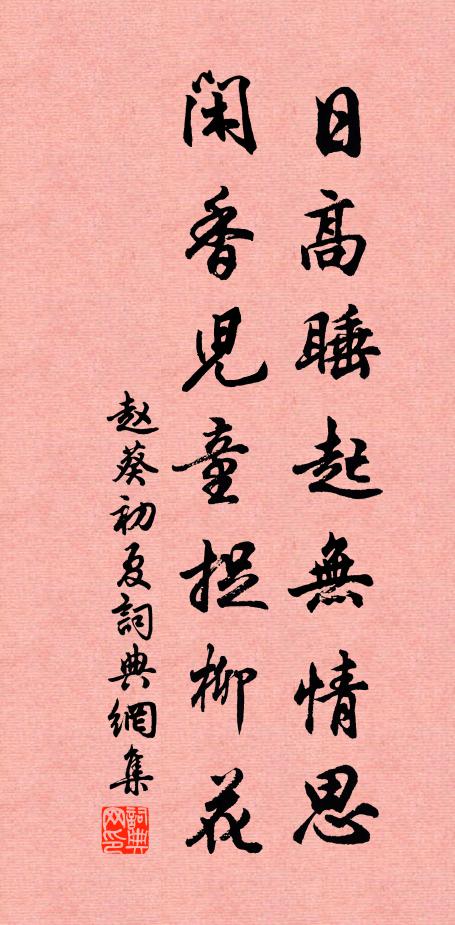 日高睡起無情思
閑香兒童捉柳花
赵葵初夏詞典網集
詞典网印